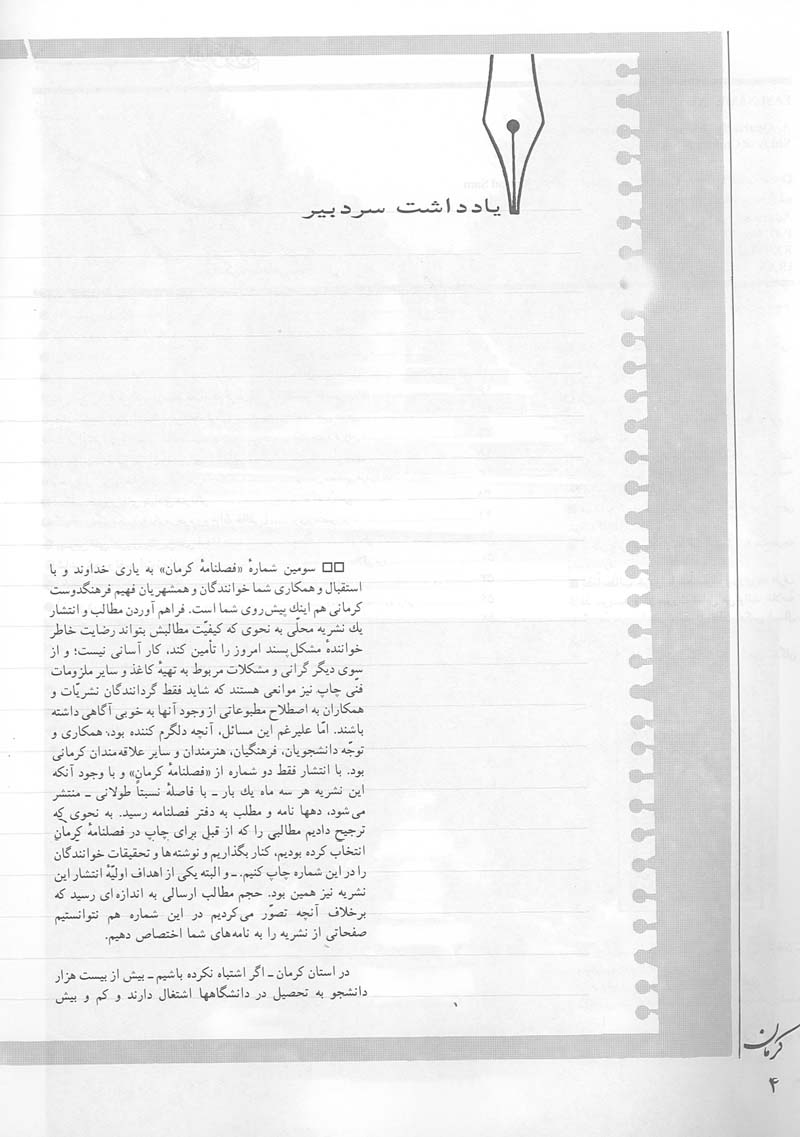 یادداشت سردبیر
□□ سومین شمارهٔ «فصلنامهٔ کرمان» به یاری خداوند و با
استقبال و همکاری شما خوانندگان و همشهریان فهیم فرهنگدوست
کرمانی هم اینک پیش‌روی شما است. فراهم آوردن مطالب و انتشار
یک نشریه محلّی به نحوی که کیفیّت مطالبش بتواند رضایت خاطر
خوانندهٔ مشکل‌پسند امروز را تأمین کند، کار آسانی نیست؛ و از
سوی دیگر گرانی و مشکلات مربوط به تهیهٔ کاغذ و سایر ملزومات
فنّی چاپ نیز موانعی هستند که شاید فقط گردانندگان نشریّات و
همکاران به اصطلاح مطبوعاتی از وجود آنها به خوبی آگاهی داشته
باشند. امّا علیرغم این مسائل، آنچه دلگرم کننده بود، همکاری و
توجّه دانشجویان، فرهنگیان، هنرمندان و سایر علاقه‌مندان کرمانی
بود. با انتشار فقط دو شماره از «فصلنامهٔ کرمان» و با وجود آنکه
این نشریه هر سه ماه یک بار ـ با فاصلهٔ نسبتاً طولانی ـ منتشر
می‌شود، دهها نامه و مطلب به دفتر فصلنامه رسید. به نحوی که
ترجیح دادیم مطالبی را که از قبل برای چاپ در فصلنامهٔ کرمان
انتخاب کرده بودیم، کنار بگذاریم و نوشته‌ها و تحقیقات خوانندگان
را در این شماره چاپ کنیم. ـ و البته یکی از اهداف اولیّهٔ انتشار این
نشریه نیز همین بود. حجم مطالب ارسالی به اندازه‌ای رسید که
برخلاف آنچه تصوّر می‌کردیم در این شماره هم نتوانستیم
صفحاتی از نشریه را به نامه‌های شما اختصاص دهیم.
در استان کرمان ـ اگر اشتباه نکرده باشیم ـ بیش از بیست هزار
دانشجو به تحصیل در دانشگاهها اشتغال دارند و کم و بیش
کرمان
۴